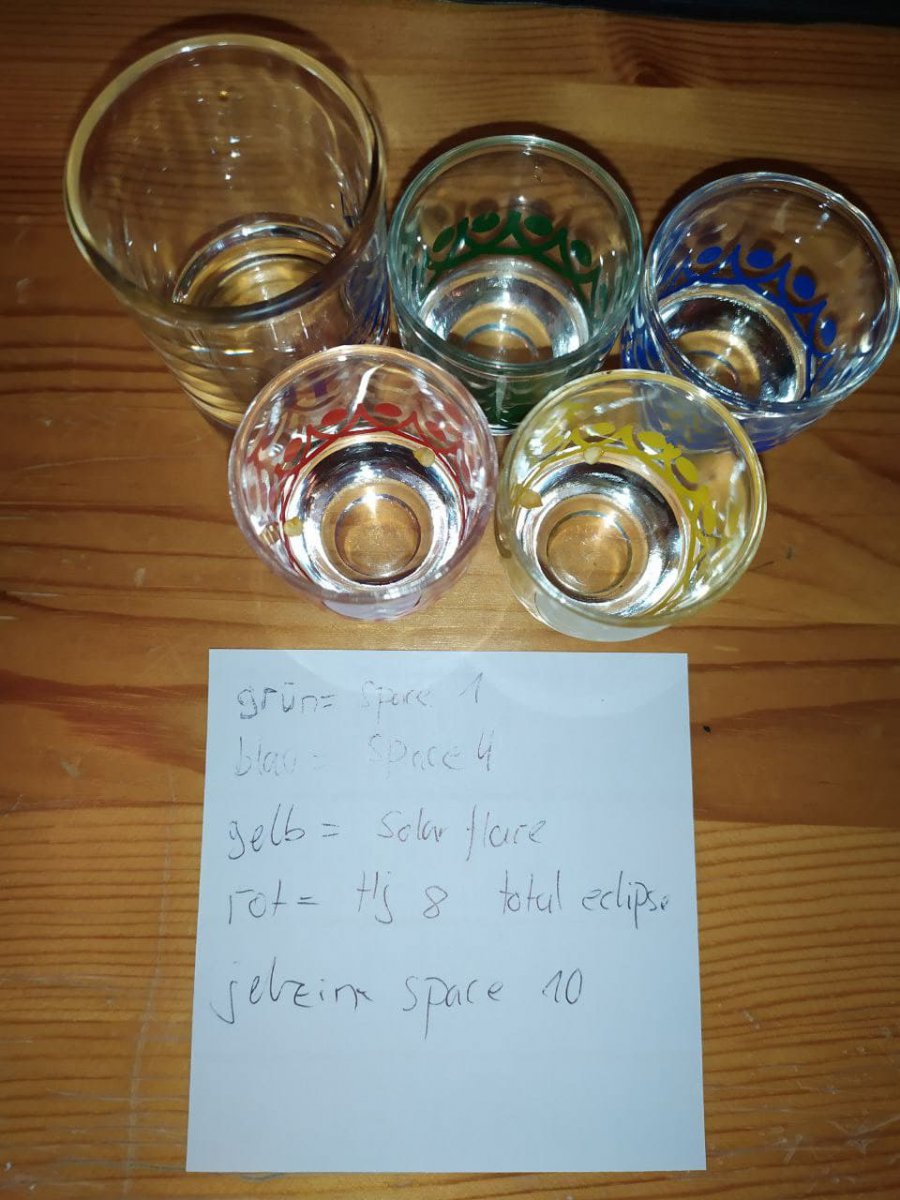 grün= Space 1
blau= Space 4
gelb = Solar flare
rot= Hj 8 total eclipse
space 10